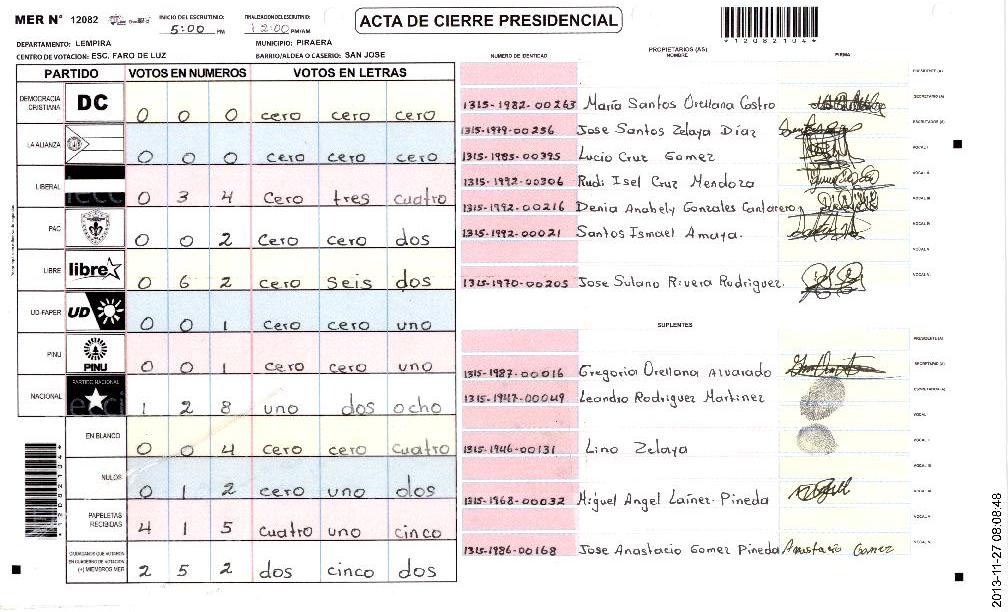 MER N° 12082
INICIO DEL ESCRUTINIO: 5:00 PM
FINALIZACION DEL ESCRUTINIO: 12:00 PM/AM
ACTA DE CIERRE PRESIDENCIAL
*12082104*
DEPARTAMENTO: LEMPIRA
MUNICIPIO: PIRAERA
CENTRO DE VOTACION: ESC. FARO DE LUZ
BARRIO/ALDEA O CASERIO: SAN JOSE
PARTIDO VOTOS EN NUMEROS VOTOS EN LETRAS
DEMOCRACIA CRISTIANA DC 0 0 0 cero cero cero
LA ALIANZA 0 0 0 cero cero cero
LIBERAL 0 3 4 cero tres cuatro
PAC 0 0 2 cero cero dos
LIBRE libre 0 6 2 cero seis dos
UD-FAPER UD 0 0 1 cero cero uno
PINU PINU 0 0 1 cero cero uno
NACIONAL PARTIDO NACIONAL 1 2 8 uno dos ocho
EN BLANCO 0 0 4 cero cero cuatro
NULOS 0 1 2 cero uno dos
PAPELETAS RECIBIDAS 4 1 5 cuatro uno cinco
CIUDADANOS QUE VOTARON EN CUADERNO DE VOTACION (+) MIEMBROS MER 2 5 2 dos cinco dos
PROPIETARIOS (AS)
NUMERO DE IDENTIDAD NOMBRE FIRMA
PRESIDENTE (A)
1315-1982-00263 María Santos Orellana Castro SECRETARIO (A)
1315-1979-00256 Jose Santos Zelaya Díaz ESCRUTADOR (A)
1315-1985-00395 Lucio Cruz Gomez VOCAL I
1315-1992-00306 Rudi Isel Cruz Mendoza VOCAL II
1315-1992-00216 Denia Anabely Gonzales Cantarero VOCAL III
1315-1992-00021 Santos Ismael Amaya. VOCAL IV
VOCAL V
1315-1970-00205 Jose Sulano Rivera Rodriguez. VOCAL VI
SUPLENTES
PRESIDENTE (A)
1315-1987-00016 Gregoria Orellana Alvarado SECRETARIO (A)
1315-1947-00049 Leandro Rodriguez Martinez ESCRUTADOR (A)
VOCAL I
1315-1946-00131 Lino Zelaya VOCAL II
VOCAL III
1315-1968-00032 Miguel Angel Laínez Pineda VOCAL IV
VOCAL V
1315-1986-00168 Jose Anastacio Gomez Pineda Anastacio Gomez VOCAL VI
2013-11-27 08:08:48